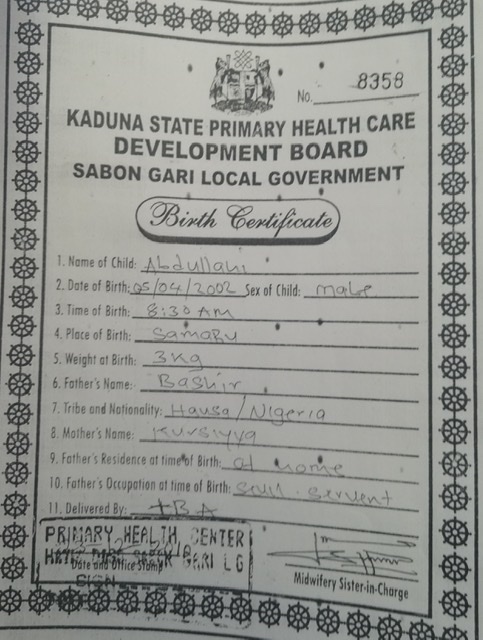 No. 8358
KADUNA STATE PRIMARY HEALTH CARE
DEVELOPMENT BOARD
SABON GARI LOCAL GOVERNMENT
Birth Certificate
1. Name of Child: Abdullahi
2. Date of Birth: 05/04/2002 Sex of Child: male
3. Time of Birth: 8:30 AM
4. Place of Birth: Samaru
5. Weight at Birth: 3kg
6. Father's Name: Bashir
7. Tribe and Nationality: Hausa/Nigeria
8. Mother's Name:
9. Father's Residence at time of Birth: at home
10. Father's Occupation at time of Birth: servent
11. Delivered By: TBA
PRIMARY HEALTH CENTER
GARI LG
Date and Office Stamp
SIGN
Midwifery Sister-in-Charge